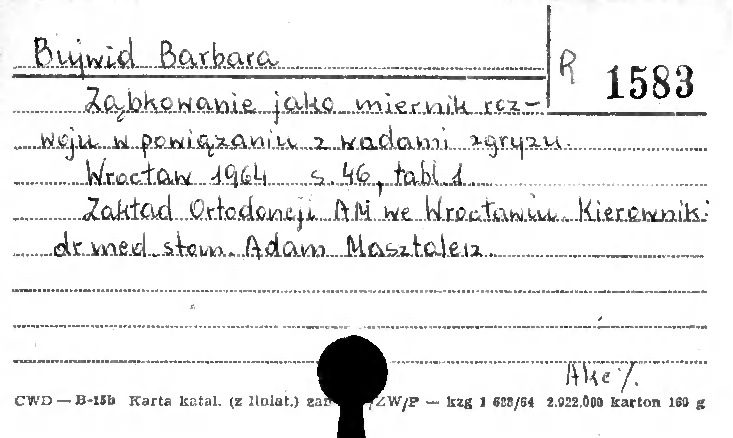 Bujwid Barbara
R 1583
Ząbkowanie jako miernik roz-
woju w powiązaniu z wadami zgryzu.
Wrocław 1964 s. 46, tabl. 1.
Zakład Ortodoncji AM we Wrocławiu. Kierownik:
dr med. stom. Adam Masztalerz.
Akc %.
CWD — B-15b Karta katal. (z liniat.) /ZW/P — kzg 1 688/64 2.922.000 karton 160 g